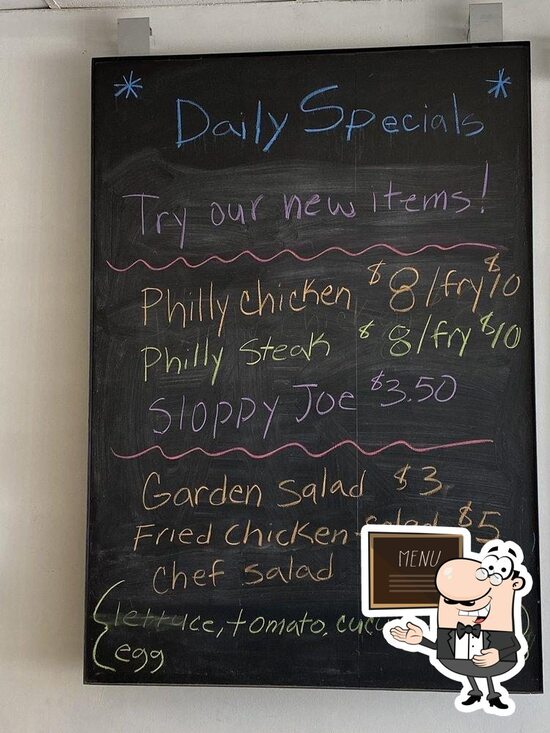 * Daily Specials *
Try our new items!
Philly chicken $8/fry $10
Philly steak $8/fry $10
Sloppy Joe $3.50
Garden Salad $3
Fried Chicken Salad $5
Chef salad
(lettuce, tomato, cucu
egg
MENU